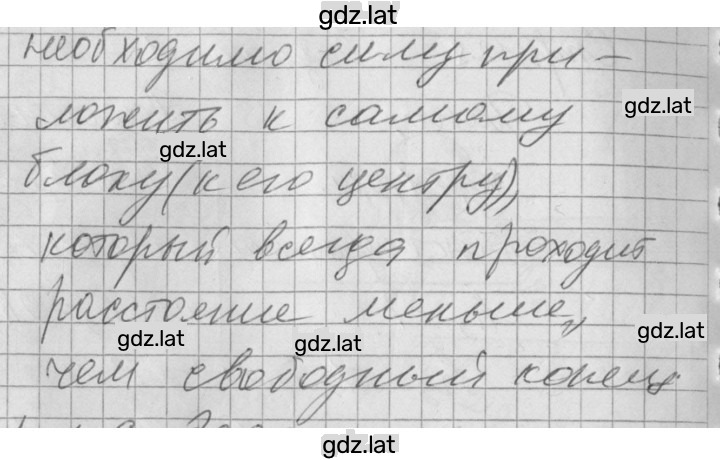 gdz.lat
необходимо силу при-
ложить к самому
gdz.lat
gdz.lat
блоку (к его центру),
который всегда проходит
расстояние меньше,
gdz.lat
gdz.lat
gdz.lat
чем свободный конец
gdz.lat